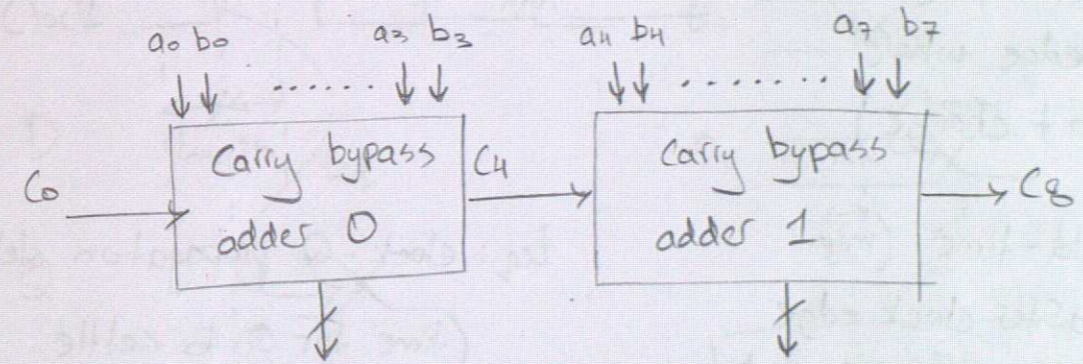 a0 b0 a3 b3 a4 b4 a7 b7
C0 Carry bypass adder 0 C4 Carry bypass adder 1 C8